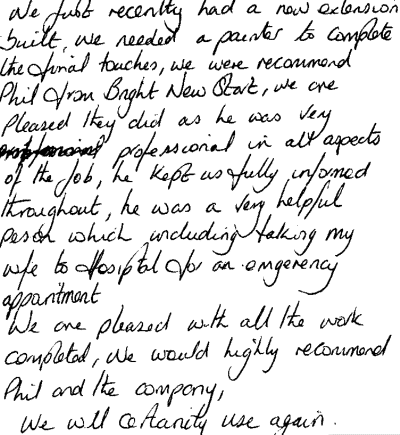 We Just recently had a new extension
built, we needed a painter to complete
the final touches, we were recommend
Phil from Bright New Start, we are
pleased they did as he was very
professional in all aspects
of the Job, he kept us fully informed
throughout, he was a very helpful
person which including taking my
wife to Hospital for an emgerency
appointment
We are pleased with all the work
completed, we would highly recommend
Phil and the company,
We will certainity use again.